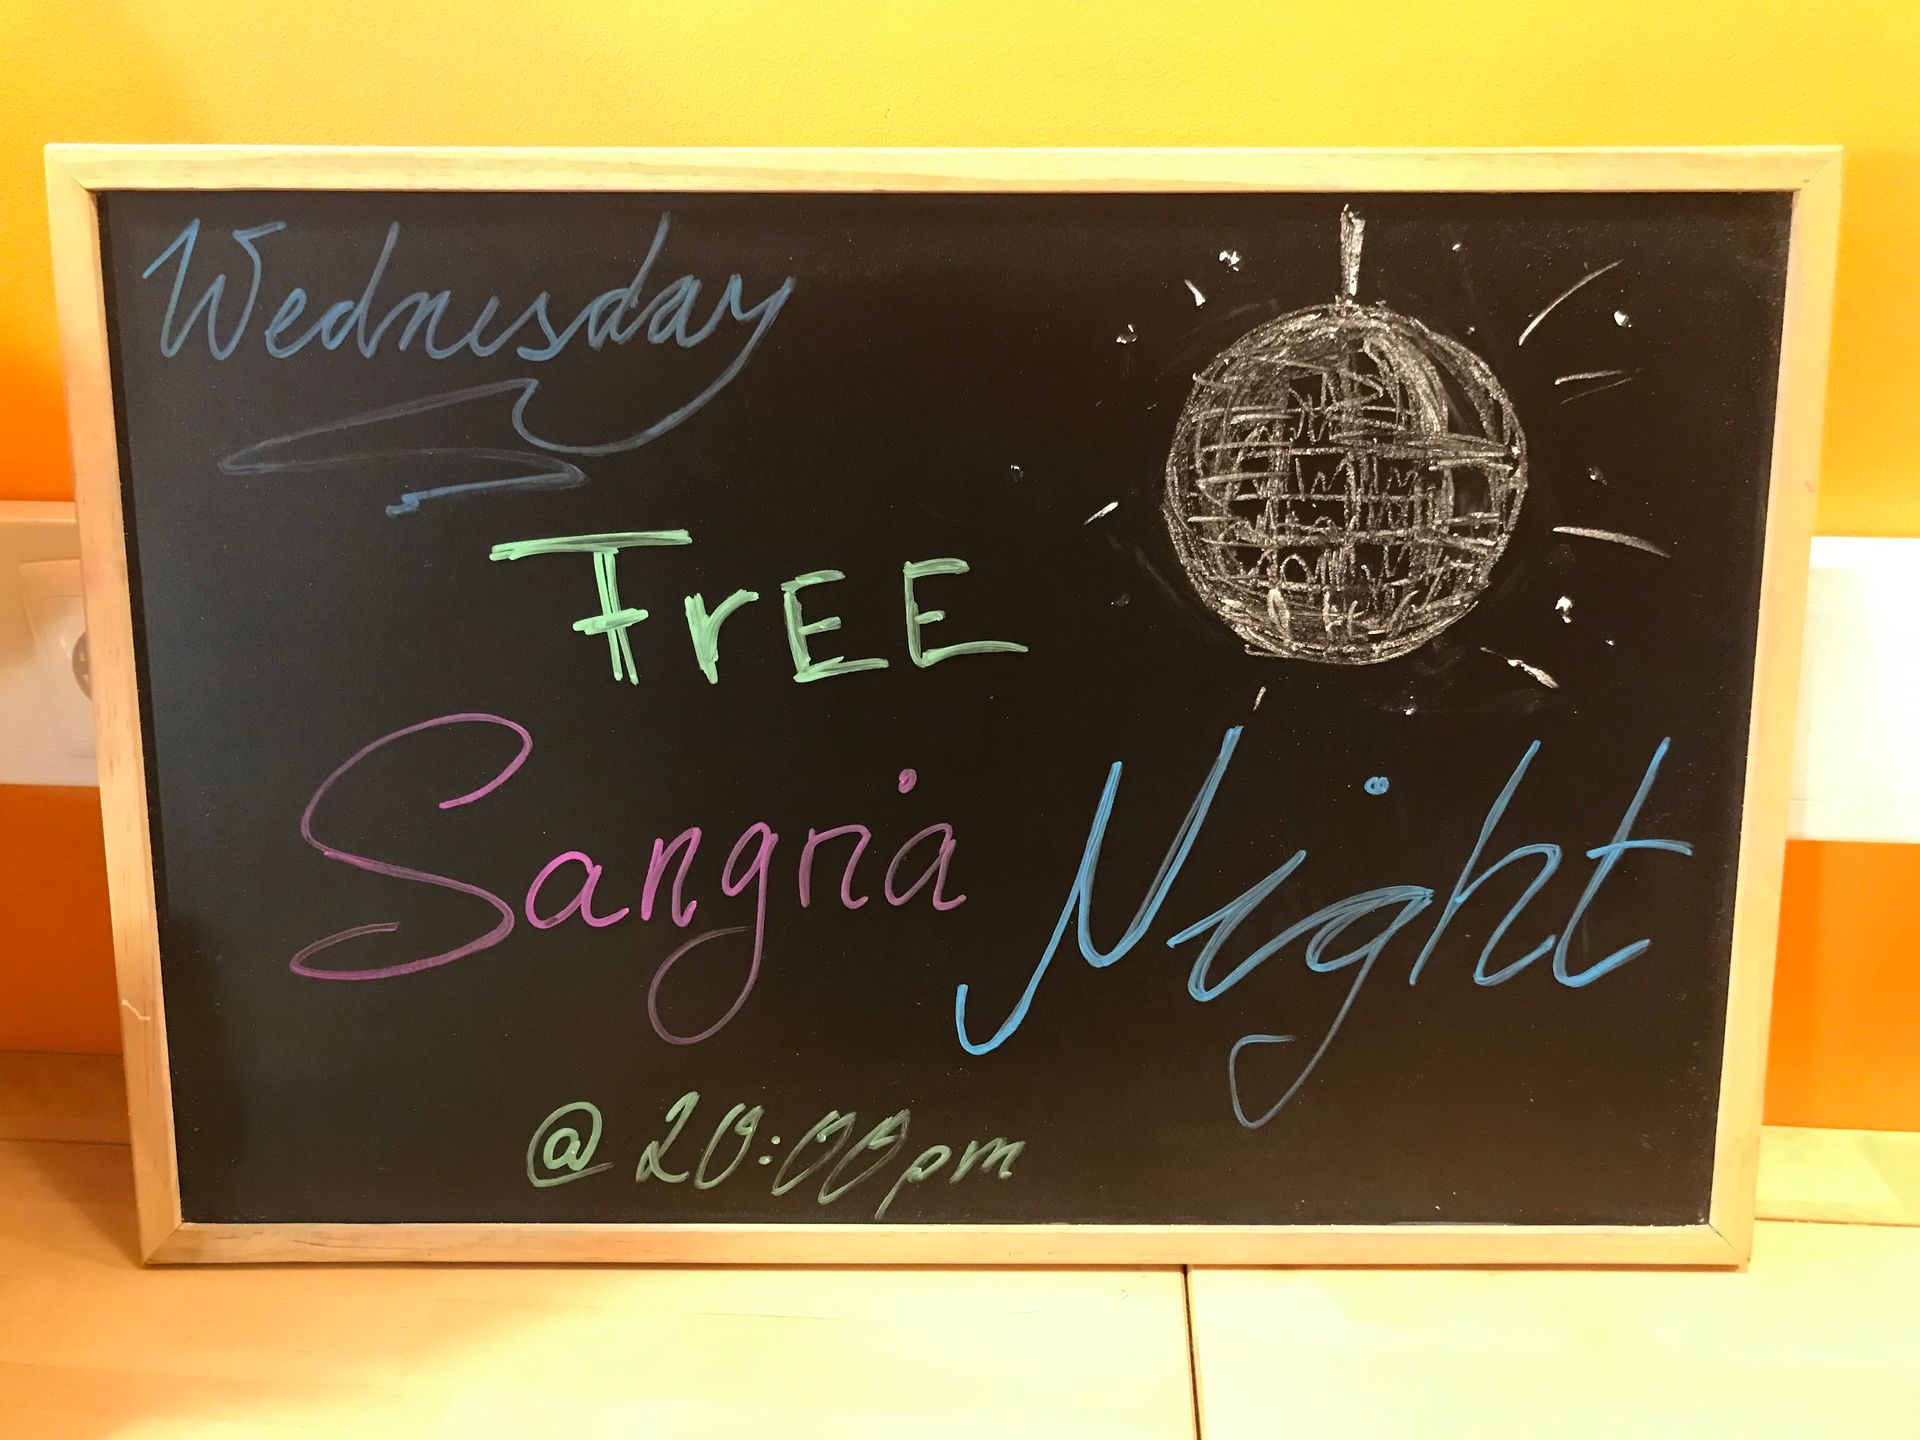 Wednesday
FrEE
Sangria Night
@ 20:00pm